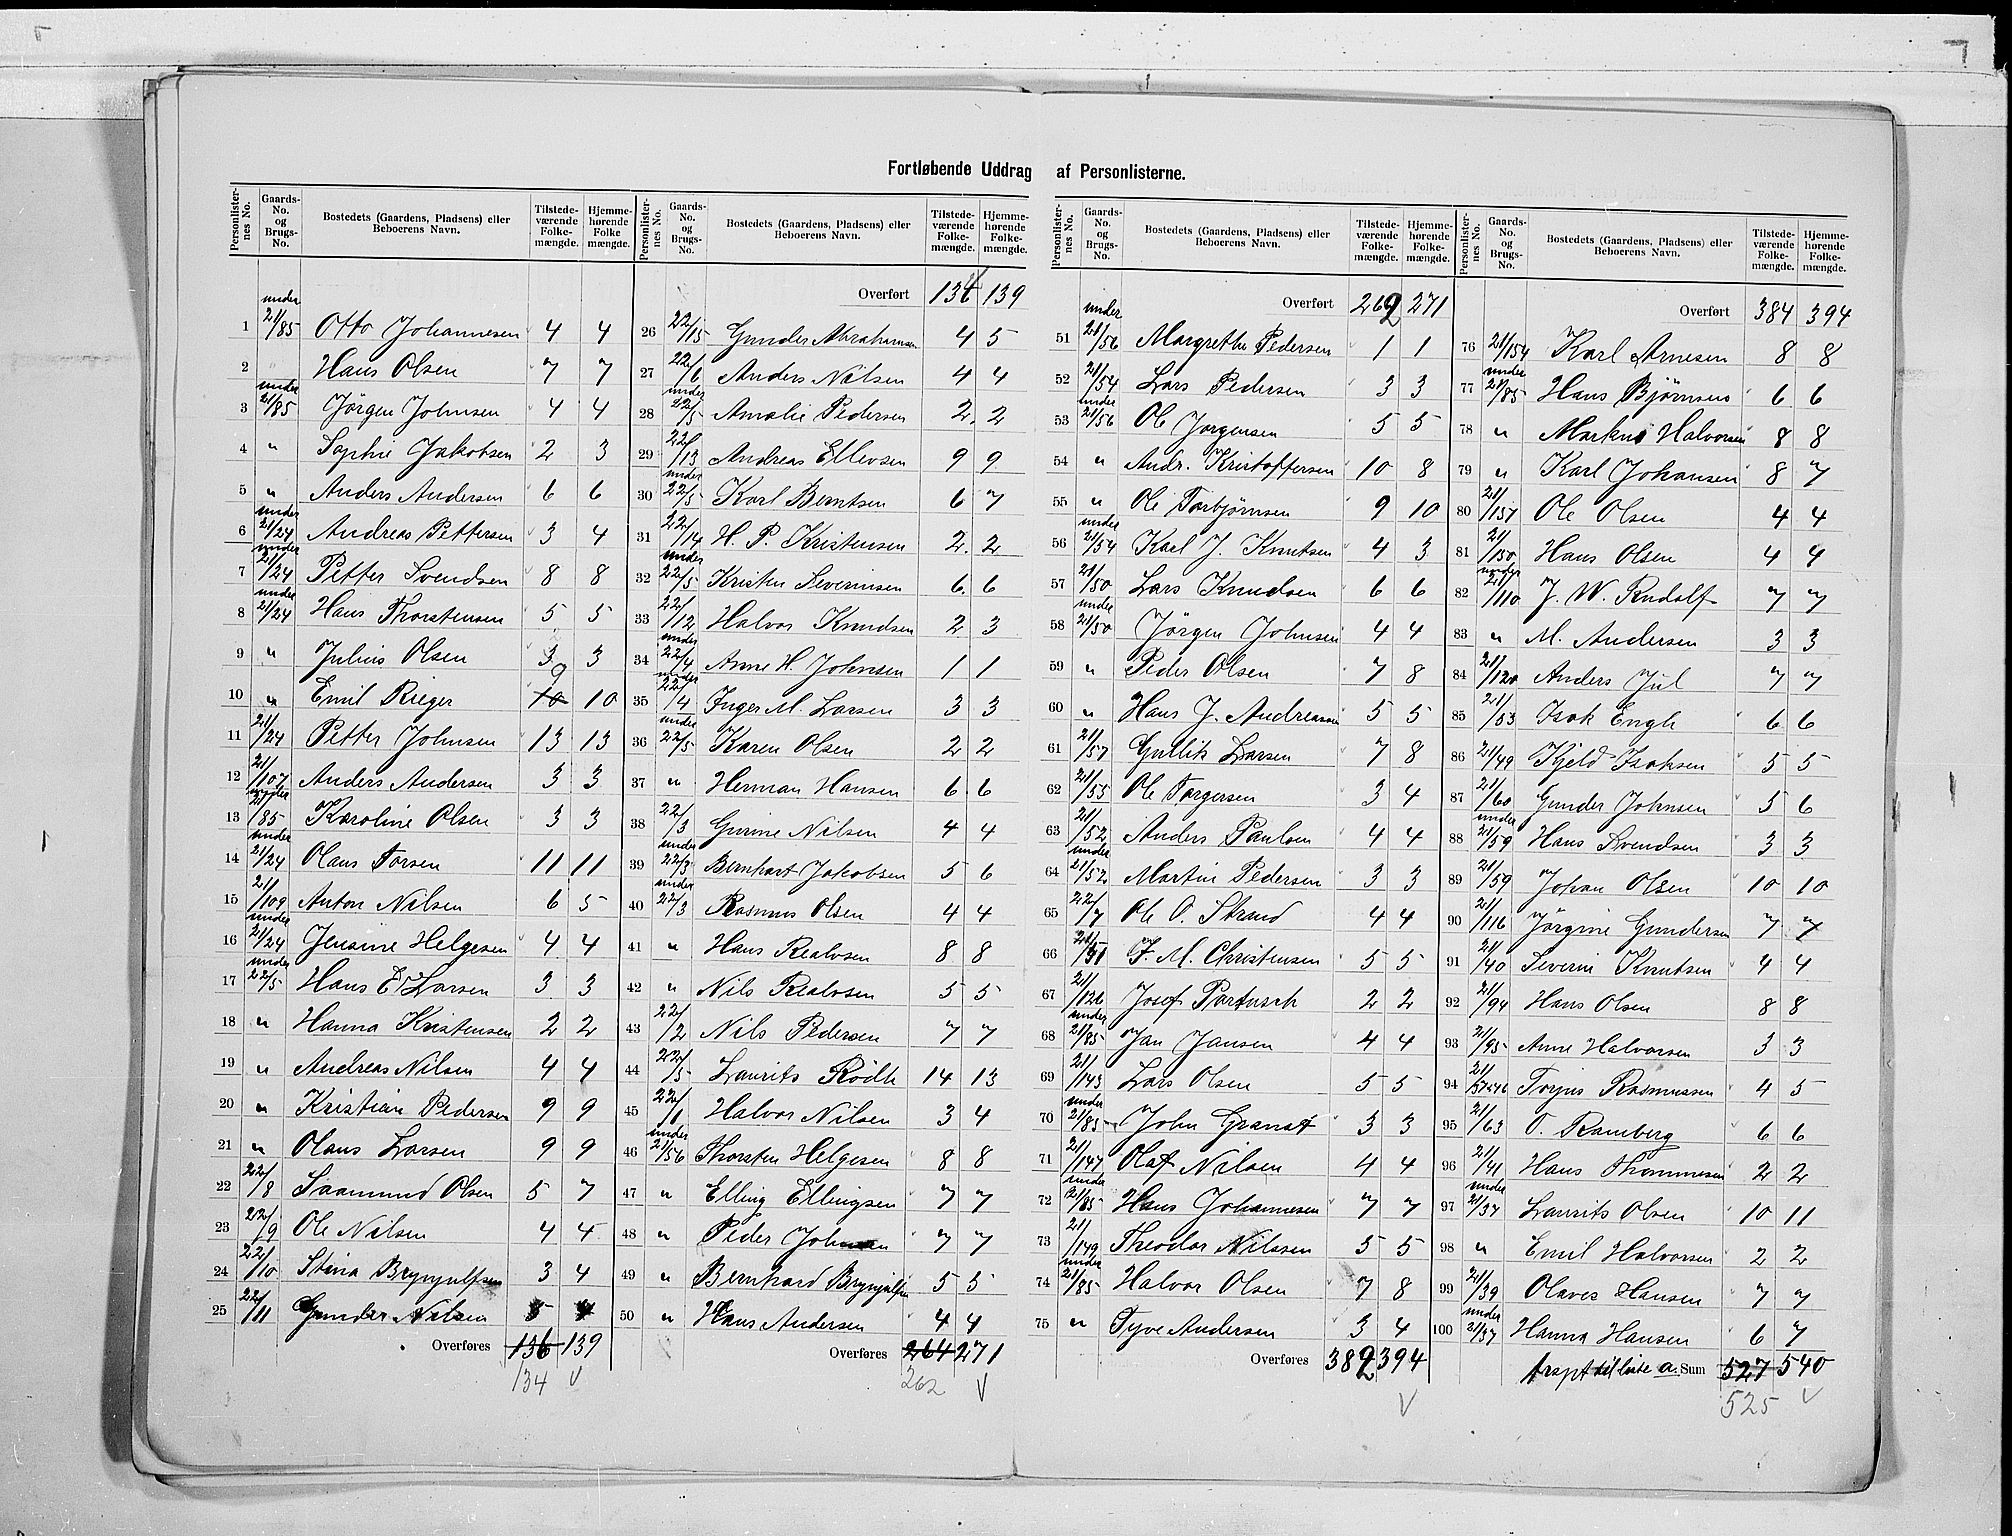 Fortløbende Uddrag af Personlisterne.
Personlister-nes No. Gaards-No. og Brugs-No. Bostedets (Gaardens, Pladsens) eller Beboerens Navn. Tilstede-værende Folke-mængde. Hjemme-hørende Folke mængde.
1 under 21/85 Otto Johannesen 4 4
2 " Hans Olsen 7 7
3 under 21/85 Jørgen Johnsen 4 4
4 " Sophie Jakobsen 2 3
5 " Anders Andersen 6 6
6 under 21/24 Andreas Pettersen 3 4
7 under 21/24 Petter Svendsen 8 8
8 under 21/24 Hans Thorstensen 5 5
9 " Julius Olsen 3 3
10 " Emil Rieger 10 9 10
11 21/24 Petter Johnsen 13 13
12 21/107 Anders Andersen 3 3
13 under 21/85 Karoline Olsen 3 3
14 under 21/24 Olaus Torsen 11 11
15 21/109 Anton Nilsen 6 5
16 under 21/24 Jensine Helgesen 4 4
17 under 22/5 Hans E. Larsen 3 3
18 " Hanna Kristensen 2 2
19 " Andreas Nilsen 4 4
20 " Kristian Pedersen 9 9
21 " Olaus Larsen 9 9
22 22/8 Saamund Olsen 5 7
23 22/9 Ole Nilsen 4 4
24 22/10 Stina Brynjulfsen 3 4
25 22/11 Gunder Nilsen 5 4
Overføres 136 139
134 v
Personlister-nes No. Gaards-No. og Brugs-No. Bostedets (Gaardens, Pladsens) eller Beboerens Navn. Tilstede-værende Folke-mængde. Hjemme-hørende Folke-mængde.
Overført 134 139
26 22/15 Gunder Abrahamsen 4 5
27 22/6 Anders Nilsen 4 4
28 under 22/5 Amalie Pedersen 2 2
29 22/13 Andreas Ellevsen 9 9
30 under 22/5 Karl Berntsen 6 7
31 22/14 H. P. Kristensen 2 2
32 under 22/5 Kristen Severinsen 6 6
33 22/12 Halvor Knudsen 2 3
34 under 22/4 Anne H. Johnsen 1 1
35 under 22/4 Inger M. Larsen 3 3
36 under 22/5 Karen Olsen 2 2
37 " Herman Hansen 6 6
38 22/3 Gurine Nilsen 4 4
39 under 22/3 Bernhart Jakobsen 5 6
40 under 22/3 Rasmus Olsen 4 4
41 " Hans Realvsen 8 8
42 " Nils Realvsen 5 5
43 22/2 Nils Pedersen 7 7
44 22/5 Laurits Rødh 14 13
45 22/1 Halvor Nilsen 3 4
46 under 21/56 Thorsten Helgesen 8 8
47 " Elling Ellingsen 7 7
48 " Peder Johnsen 7 7
49 " Bernhard Brynjulfsen 5 5
50 " Hans Andersen 4 4
Overføres 264 271
262 v
Personlister-nes No. Gaards-No. og Brugs-No. Bostedets (Gaardens, Pladsens) eller Beboerens Navn. Tilstede-værende Folke-mængde. Hjemme-hørende Folke-mængde.
Overført 262 271
51 under 21/56 Margrethe Pedersen 1 1
52 21/54 Lars Pedersen 3 3
53 under 21/56 Ole Jørgensen 5 5
54 " Andr. Kristoffersen 10 8
55 " Ole Torbjørnsen 9 10
56 under 21/54 Karl J. Knutsen 4 3
57 21/50 Lars Knudsen 6 6
58 under 21/50 Jörgen Johnsen 4 4
59 " Peder Olsen 7 8
60 " Hans J. Andreasen 5 5
61 21/57 Gullik Larsen 7 8
62 21/55 Ole Torgersen 3 4
63 21/52 Anders Paulsen 4 4
64 under 21/52 Martin Pedersen 3 3
65 22/7 Ole O. Strand 4 4
66 21/51 F. M. Christensen 5 5
67 21/126 Josef Partusch 2 2
68 under 21/85 Jan Jansen 4 4
69 21/143 Lars Olsen 5 5
70 under 21/85 John Granst 3 3
71 21/147 Olaf Nilsen 4 4
72 under 21/85 Hans Johannesen 7 7
73 21/149 Theodor Nilssen 5 5
74 under 21/85 Halvor Olsen 7 8
75 " Tyve Andersen 3 4
Overføres 382 394
v
Personlister-nes No. Gaards-No. og Brugs-No. Bostedets (Gaardens, Pladsens) eller Beboerens Navn. Tilstede-værende Folke-mængde. Hjemme-hørende Folke-mængde.
Overført 384 394
76 21/154 Karl Arnesen 8 8
77 under 21/85 Hans Bjørnsen 6 6
78 " Markus Halvorsen 8 8
79 " Karl Johansen 8 7
80 21/157 Ole Olsen 4 4
81 21/150 Hans Olsen 4 4
82 under 21/110 J. W. Rudolf 7 7
83 " M. Andersen 3 3
84 21/120 Anders Jul 7 7
85 21/53 Isak Engh 6 6
86 21/49 Kjeld Isaksen 5 5
87 21/60 Gunder Johnsen 5 6
88 under 21/59 Hans Svendsen 3 3
89 21/59 Johan Olsen 10 10
90 21/116 Jörgine Gundersen 7 7
91 21/40 Severin Knutsen 4 4
92 21/94 Hans Olsen 8 8
93 21/95 Anne Halvorsen 3 3
94 21/37+46 Torjus Rasmussen 4 5
95 21/63 O. Ramberg 6 6
96 21/41 Hans Thommesen 2 2
97 under 21/37 Laurits Olsen 10 11
98 " Emil Halvorsen 2 2
99 21/39 Olaves Hansen 7 7
100 under 21/37 Hanna Hansen 6 7
til liste a. Sum 527 540
525 v